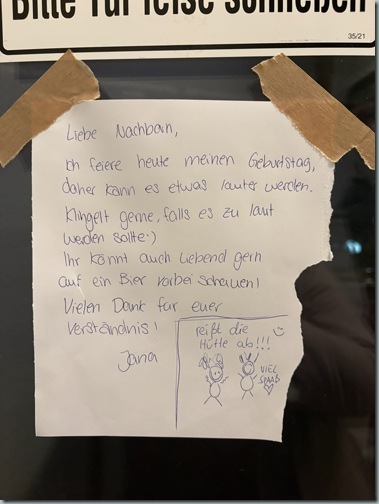 Bitte Tür leise schließen
35/21
Liebe Nachbarn,
Ich feiere heute meinen Geburtstag,
daher kann es etwas lauter werden.
Klingelt gerne, falls es zu laut
werden sollte :)
Ihr könnt auch liebend gern
auf ein Bier vorbei schauen!
Vielen Dank für euer
Verständnis!
Jana
reißt die
Hütte ab!!!
VIEL
SPAẞ